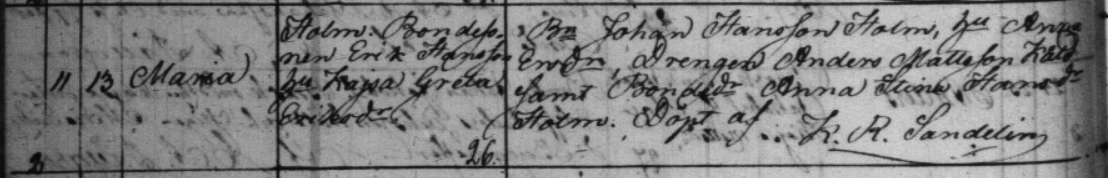 11 13 Maria
Holm. Bondeso-
nen Erik Hansson
hu Kajsa Greta
Eriksdr.
26.
Bn Johan Hansson Holm, hu Anna
Ersdr, Drengen Anders Mattsson
samt Bondedr Anna Stina Hansdr
Holm. Döpt af K. R. Sandelin